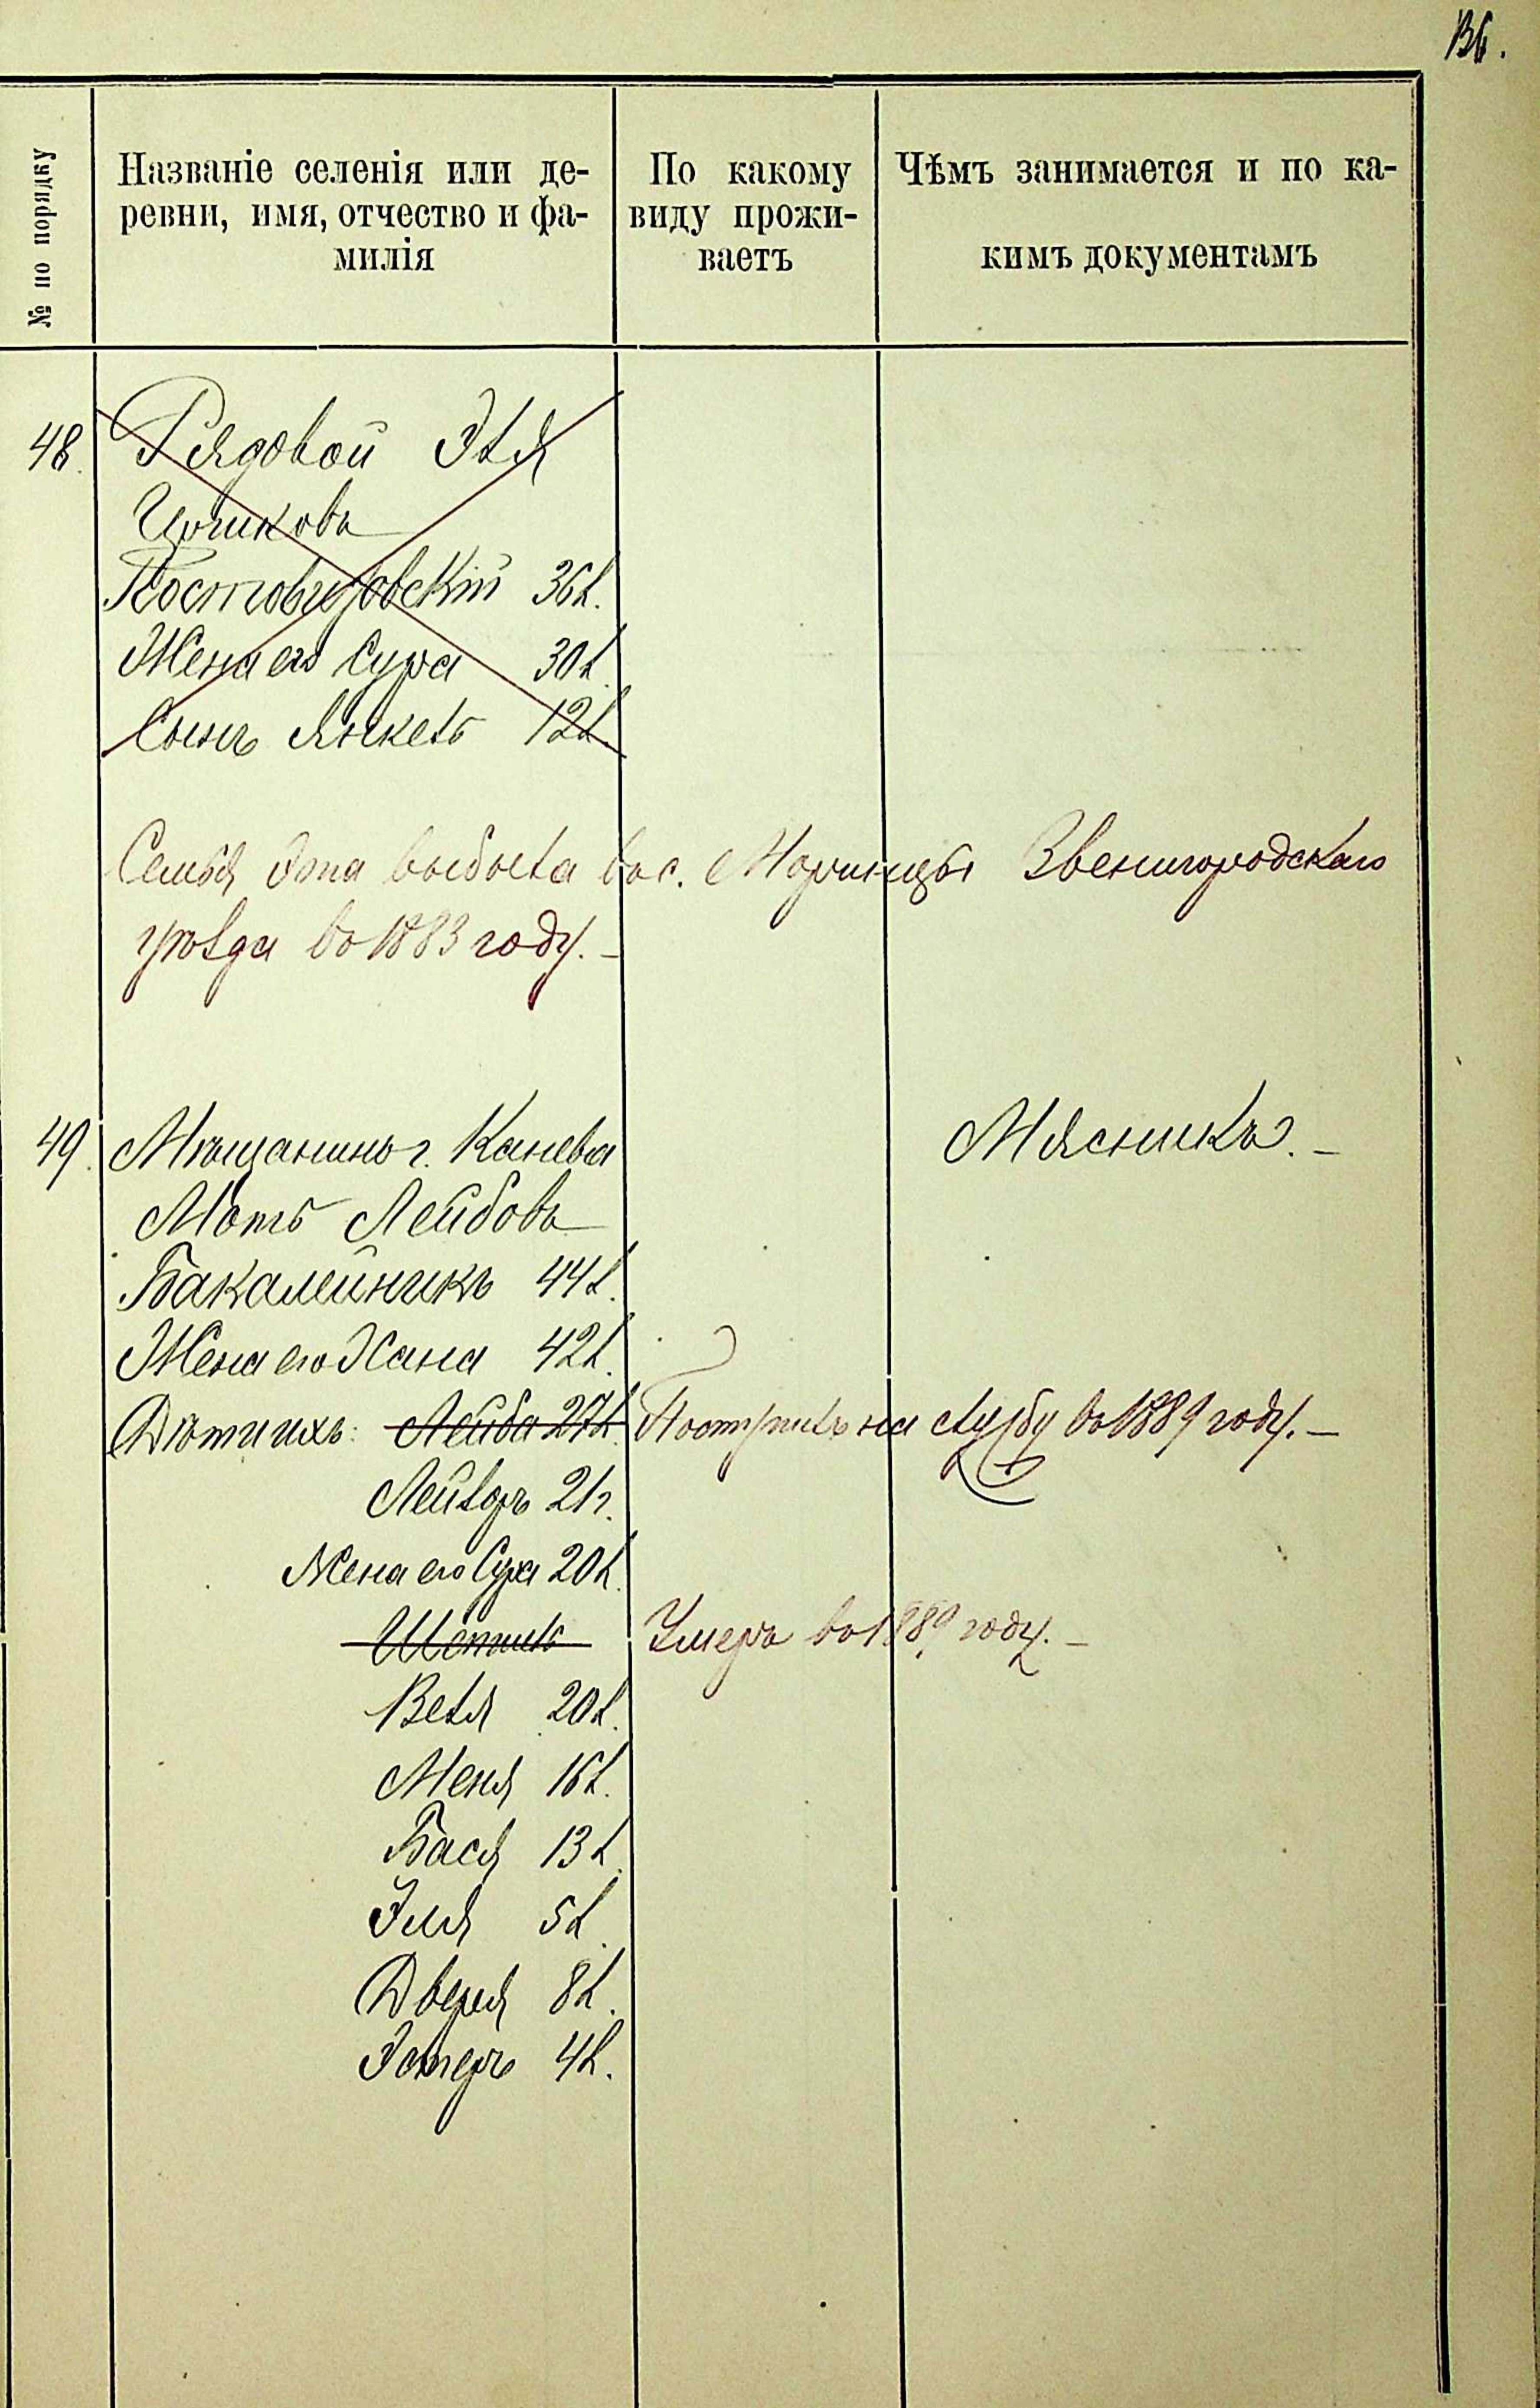 136.
№ по порядку
Названіе селенія или де-
ревни, имя, отчество и фа-
милія
По какому
виду прожи-
ваетъ
Чѣмъ занимается и по ка-
кимъ документамъ
48. Рядовой Эля
Ицковъ
36 л.
Жена его Сура 30 л.
Сынъ Янкель 12 л.
Семья эта выбыла въ с. Моринцы Звенигородскаго
уѣзда въ 1883 году. –
49. Мѣщанинъ г. Канева Мясникъ. –
Моть Лейбовъ
Бакалейникъ 44 л.
Жена его Хана 42 л.
Дѣти ихъ: Лейба 27 л. Поступилъ на службу въ 1889 году. –
Лейзоръ 21 г.
Жена его Сура 20 л.
Умеръ въ 1889 году. –
Веля 20 л.
Меня 16 л.
Бася 13 л.
Эля 5 л.
Двейря 8 л.
Эстеръ 4 л.